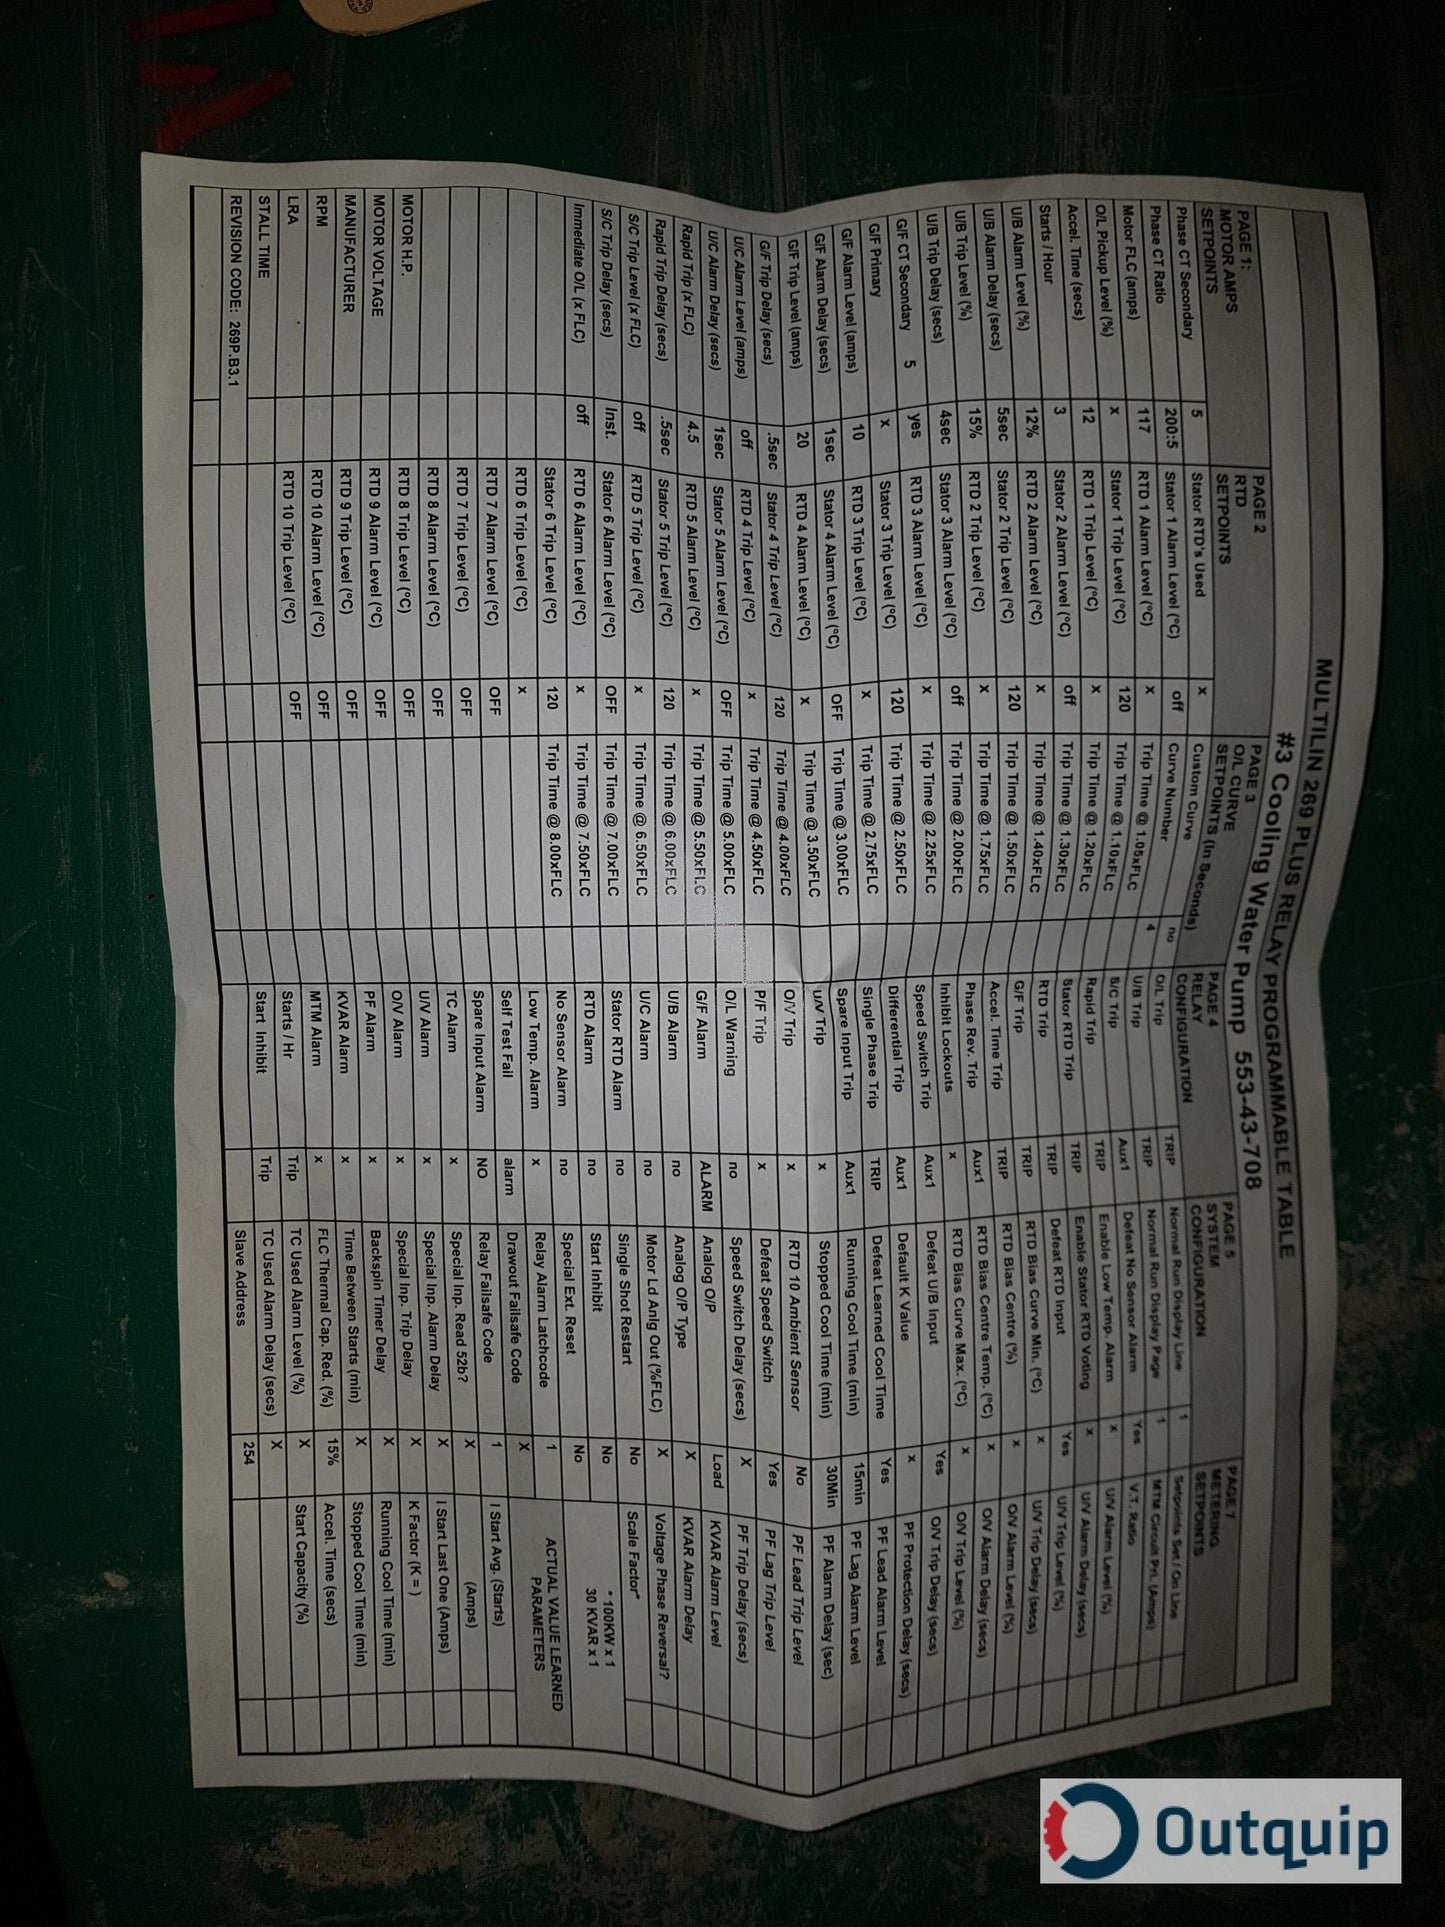 MULTILIN 269 PLUS RELAY PROGRAMMABLE TABLE
#3 Cooling Water Pump 553-43-708
PAGE 1:
MOTOR AMPS
SETPOINTS
Phase CT Secondary 5
Phase CT Ratio 200:5
Motor FLC (amps) 117
O/L Pickup Level (%) x
Accel. Time (secs) 12
Starts / Hour 3
U/B Alarm Level (%) 12%
U/B Alarm Delay (secs) 5sec
U/B Trip Level (%) 15%
U/B Trip Delay (secs) 4sec
G/F CT Secondary 5 yes
G/F Primary x
G/F Alarm Level (amps) 10
G/F Alarm Delay (secs) 1sec
G/F Trip Level (amps) 20
G/F Trip Delay (secs) .5sec
U/C Alarm Level (amps) off
U/C Alarm Delay (secs) 1sec
Rapid Trip (x FLC) 4.5
Rapid Trip Delay (secs) .5sec
S/C Trip Level (x FLC) off
S/C Trip Delay (secs) Inst.
Immediate O/L (x FLC) off
MOTOR H.P.
MOTOR VOLTAGE
MANUFACTURER
RPM
LRA
STALL TIME
REVISION CODE: 269P.B3.1
PAGE 2
RTD
SETPOINTS
Stator RTD's Used x
Stator 1 Alarm Level (°C) off
RTD 1 Alarm Level (°C) x
Stator 1 Trip Level (°C) 120
RTD 1 Trip Level (°C) x
Stator 2 Alarm Level (°C) off
RTD 2 Alarm Level (°C) x
Stator 2 Trip Level (°C) 120
RTD 2 Trip Level (°C) x
Stator 3 Alarm Level (°C) off
RTD 3 Alarm Level (°C) x
Stator 3 Trip Level (°C) 120
RTD 3 Trip Level (°C) x
Stator 4 Alarm Level (°C) OFF
RTD 4 Alarm Level (°C) x
Stator 4 Trip Level (°C) 120
RTD 4 Trip Level (°C) x
Stator 5 Alarm Level (°C) OFF
RTD 5 Alarm Level (°C) x
Stator 5 Trip Level (°C) 120
RTD 5 Trip Level (°C) x
Stator 6 Alarm Level (°C) OFF
RTD 6 Alarm Level (°C) x
Stator 6 Trip Level (°C) 120
RTD 6 Trip Level (°C) x
RTD 7 Alarm Level (°C) OFF
RTD 7 Trip Level (°C) OFF
RTD 8 Alarm Level (°C) OFF
RTD 8 Trip Level (°C) OFF
RTD 9 Alarm Level (°C) OFF
RTD 9 Trip Level (°C) OFF
RTD 10 Alarm Level (°C) OFF
RTD 10 Trip Level (°C) OFF
PAGE 3
O/L CURVE
SETPOINTS (In Seconds)
Custom Curve no
Curve Number 4
Trip Time @ 1.05xFLC
Trip Time @ 1.10xFLC
Trip Time @ 1.20xFLC
Trip Time @ 1.30xFLC
Trip Time @ 1.40xFLC
Trip Time @ 1.50xFLC
Trip Time @ 1.75xFLC
Trip Time @ 2.00xFLC
Trip Time @ 2.25xFLC
Trip Time @ 2.50xFLC
Trip Time @ 2.75xFLC
Trip Time @ 3.00xFLC
Trip Time @ 3.50xFLC
Trip Time @ 4.00xFLC
Trip Time @ 4.50xFLC
Trip Time @ 5.00xFLC
Trip Time @ 5.50xFLC
Trip Time @ 6.00xFLC
Trip Time @ 6.50xFLC
Trip Time @ 7.00xFLC
Trip Time @ 7.50xFLC
Trip Time @ 8.00xFLC
PAGE 4
RELAY
CONFIGURATION
O/L Trip TRIP
U/B Trip TRIP
S/C Trip Aux1
Rapid Trip TRIP
Stator RTD Trip TRIP
RTD Trip TRIP
G/F Trip TRIP
Accel. Time Trip TRIP
Phase Rev. Trip Aux1
Inhibit Lockouts x
Speed Switch Trip Aux1
Differential Trip Aux1
Single Phase Trip TRIP
Spare Input Trip Aux1
U/V Trip x
O/V Trip x
P/F Trip x
O/L Warning no
G/F Alarm ALARM
U/B Alarm no
U/C Alarm no
Stator RTD Alarm no
RTD Alarm no
No Sensor Alarm no
Low Temp. Alarm x
Self Test Fail alarm
Spare Input Alarm NO
TC Alarm x
U/V Alarm x
O/V Alarm x
PF Alarm x
KVAR Alarm x
MTM Alarm x
Starts / Hr Trip
Start Inhibit Trip
PAGE 5
SYSTEM
CONFIGURATION
Normal Run Display Line 1
Normal Run Display Page 1
Defeat No Sensor Alarm Yes
Enable Low Temp. Alarm x
Enable Stator RTD Voting x
Defeat RTD Input Yes
RTD Bias Curve Min. (°C) x
RTD Bias Centre (%) x
RTD Bias Centre Temp. (°C) x
RTD Bias Curve Max. (°C) x
Defeat U/B Input Yes
Default K Value x
Defeat Learned Cool Time Yes
Running Cool Time (min) 15min
Stopped Cool Time (min) 30Min
RTD 10 Ambient Sensor No
Defeat Speed Switch Yes
Speed Switch Delay (secs) X
Analog O/P Load
Analog O/P Type X
Motor Ld Anlg Out (%FLC) X
Single Shot Restart No
Start Inhibit No
Special Ext. Reset No
Relay Alarm Latchcode 1
Drawout Failsafe Code X
Relay Failsafe Code 1
Special Inp. Read 52b? X
Special Inp. Alarm Delay X
Special Inp. Trip Delay X
Backspin Timer Delay X
Time Between Starts (min) X
FLC Thermal Cap. Red. (%) 15%
TC Used Alarm Level (%) X
TC Used Alarm Delay (secs) X
Slave Address 254
PAGE 7
METERING
SETPOINTS
Setpoints Set / On Line
MTM Circuit Pri. (Amps)
V.T. Ratio
U/V Alarm Level (%)
U/V Alarm Delay (secs)
U/V Trip Level (%)
U/V Trip Delay (secs)
O/V Alarm Level (%)
O/V Alarm Delay (secs)
O/V Trip Level (%)
O/V Trip Delay (secs)
PF Protection Delay (secs)
PF Lead Alarm Level
PF Lag Alarm Level
PF Alarm Delay (sec)
PF Lead Trip Level
PF Lag Trip Level
PF Trip Delay (secs)
KVAR Alarm Level
KVAR Alarm Delay
Voltage Phase Reversal?
Scale Factor*
* 100KW x 1
30 KVAR x 1
ACTUAL VALUE LEARNED
PARAMETERS
I Start Avg. (Starts)
(Amps)
I Start Last One (Amps)
K Factor (K = )
Running Cool Time (min)
Stopped Cool Time (min)
Accel. Time (secs)
Start Capacity (%)
Outquip